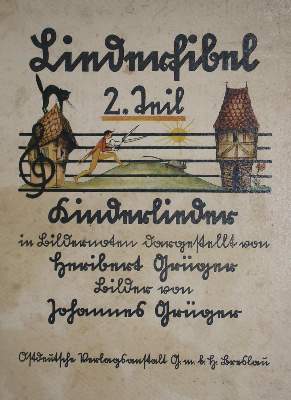 Liederfibel
2. Teil
Kinderlieder
in Bildernoten dargestellt von
Heribert Grüger
Bilder von
Johannes Grüger
Ostdeutsche Verlagsanstalt G.m.b.H. Breslau